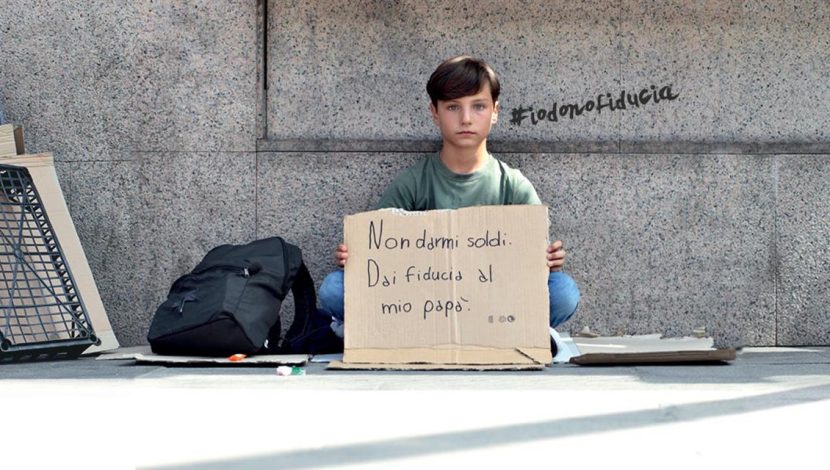 #iodonofiducia
Non darmi soldi.
Dai fiducia al
mio papà.